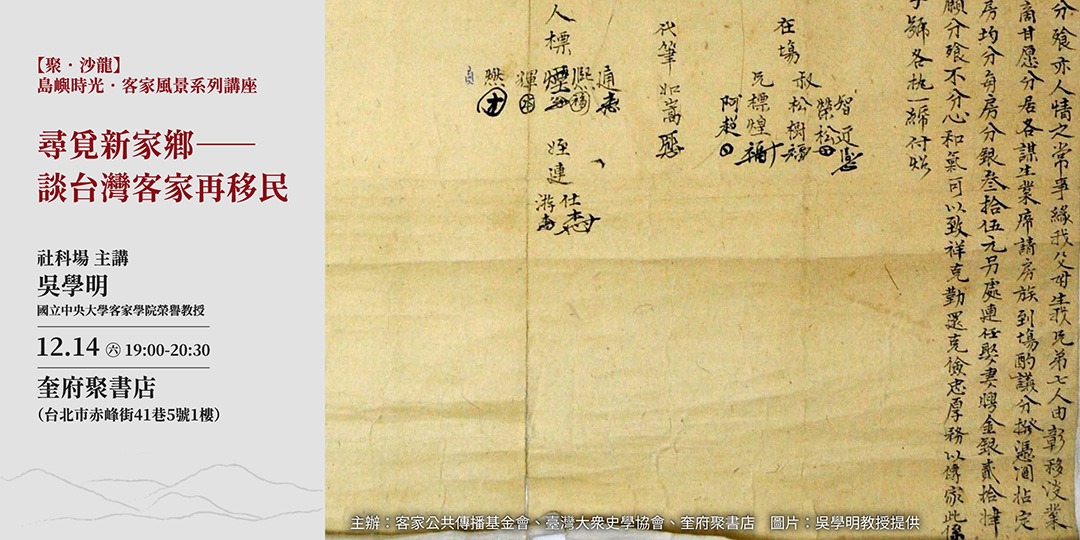 【聚・沙龍】
島嶼時光・客家風景系列講座
尋覓新家鄉——
談台灣客家再移民
社科場 主講
吳學明
國立中央大學客家學院榮譽教授
12.14 ㊅ 19:00-20:30
奎府聚書店
（台北市赤峰街41巷5號1樓）
分㸑亦人情之常事緣我父母生我兄弟七人由彰移淡業
商甘愿分居各謀生業席請房族到場酌議分撥憑鬮拈定
房均分每房分銀叁拾伍元另處連任娶妻聘金銀貳拾
願分㸑不分心和氣可以致祥克勤還克儉忠厚務以傳家此係
號各執一紙付炤
智
在場 叔松樹
榮松
兄標煌
阿
代筆如嵩
通
熙
人標煙
輝
姪連
仕
游
主辦：客家公共傳播基金會、臺灣大眾史學協會、奎府聚書店 圖片：吳學明教授提供